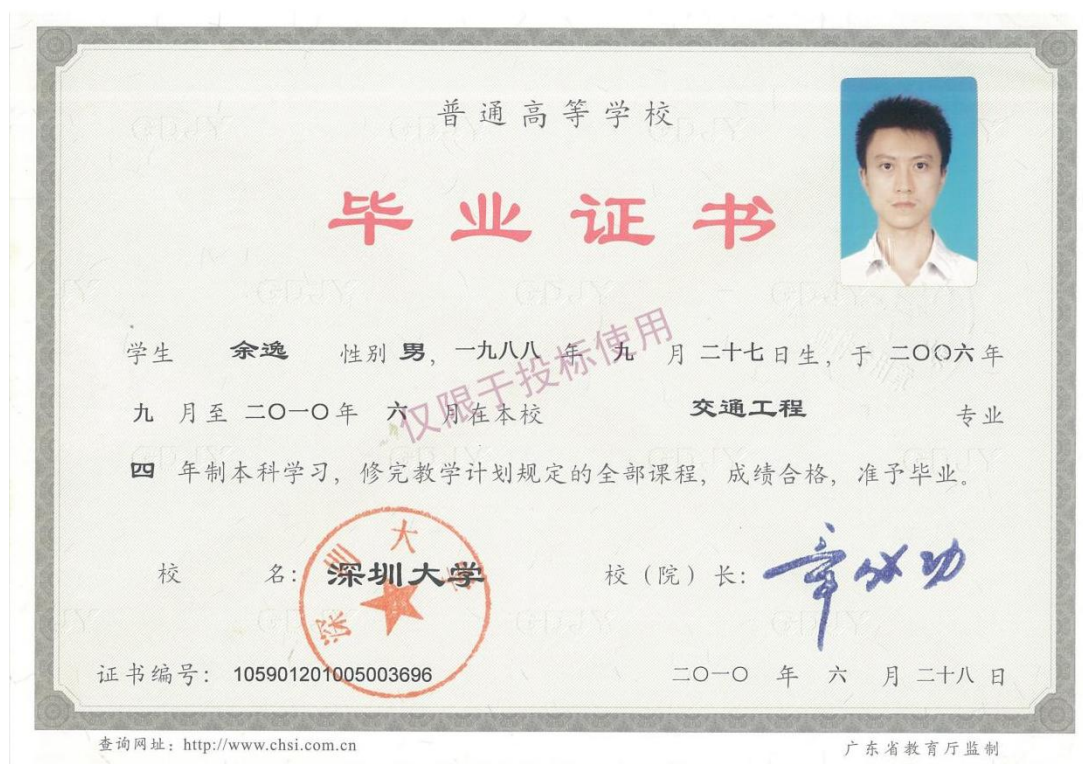 普通高等学校
毕业证书
学生 余逸 性别 男，一九八八 年 九 月 二十七日生，于 二〇〇六年
九 月至 二〇一〇年 六 月在本校 交通工程 专业
四 年制本科学习，修完教学计划规定的全部课程，成绩合格，准予毕业。
仅限于投标使用
深圳大学
校 名：深圳大学 校（院）长：章必功
证书编号：105901201005003696 二〇一〇 年 六 月 二十八 日
查询网址：http://www.chsi.com.cn 广东省教育厅监制